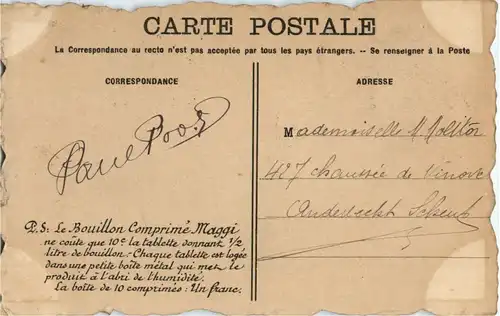 CARTE POSTALE
La Correspondance au recto n'est pas acceptée par tous les pays étrangers. -- Se renseigner à la Poste
CORRESPONDANCE
ADRESSE
Mademoiselle M Molitor
427 chaussée de Ninove
Anderlecht Scheut
P.S: Le Bouillon Comprimé Maggi
ne coûte que 10c la tablette donnant 1/2
litre de bouillon: Chaque tablette est logée
dans une petite boîte métal qui met le
produit à l'abri de l'humidité.
La boîte de 10 comprimés: Un franc.